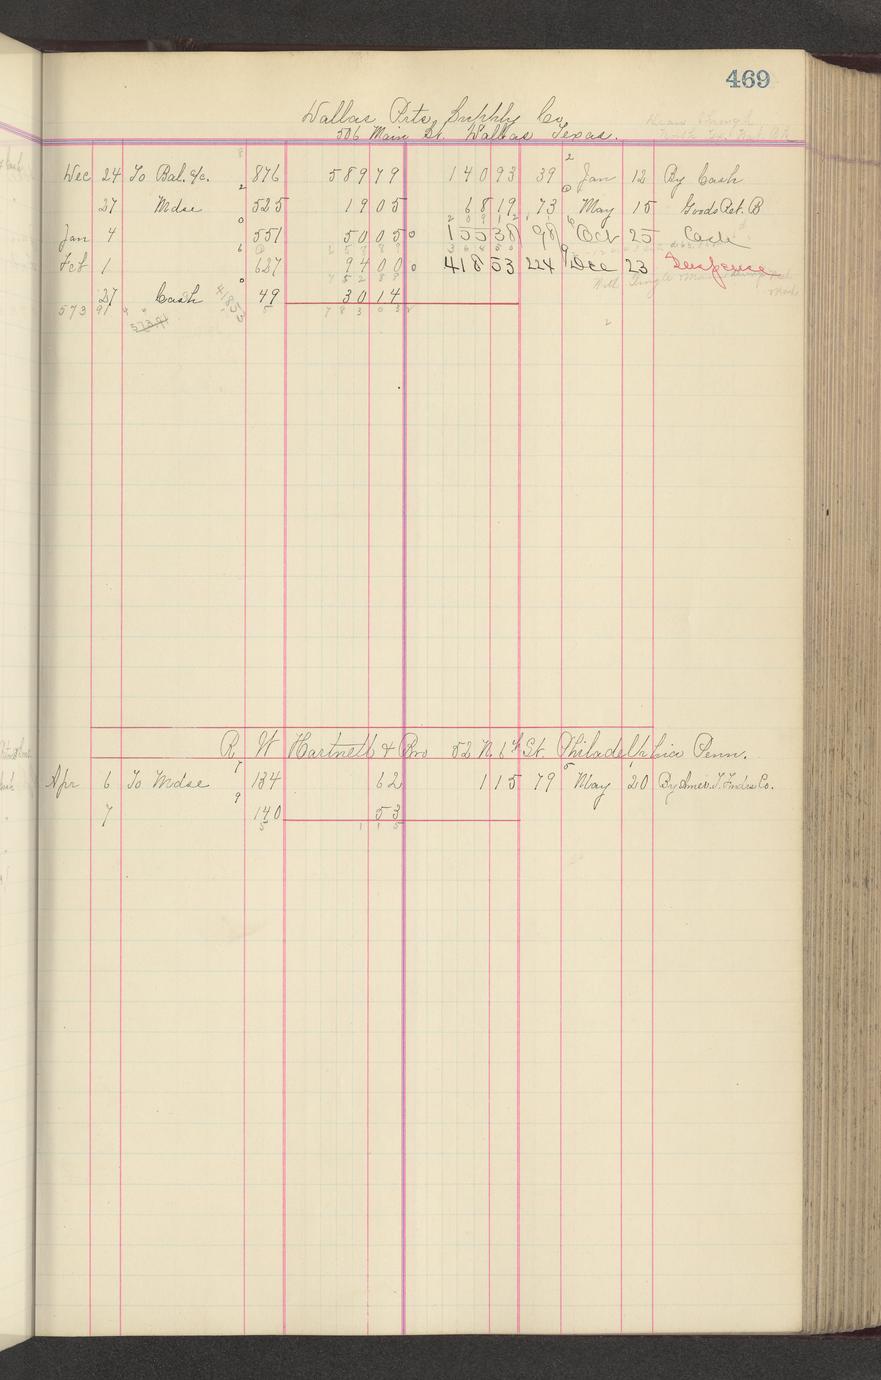 469
Dallas Ptg. Supply Co.
506 Main St. Dallas Texas.
Dec 24 To Bal. &c. 8 876 589 79 140 93 39 2 Jan 12 By Cash
27 Mdse 2 525 19 05 68 19 73 0 May 15 Goods Ret. B
Jan 4 0 551 50 05 0 155 38 98 6 Oct 25 Cash
Feb 1 6 627 94 00 0 418 53 224 9 Dec 23 Suspense
27 Cash 0 49 30 14
573 91
783 03
R W Hartnett & Bro 52 N. 6th St. Philadelphia Penn.
Apr 6 To Mdse 7 134 62 115 79 5 May 20 By Amer. T. Fndrs Co.
7 9 140 53
1 15